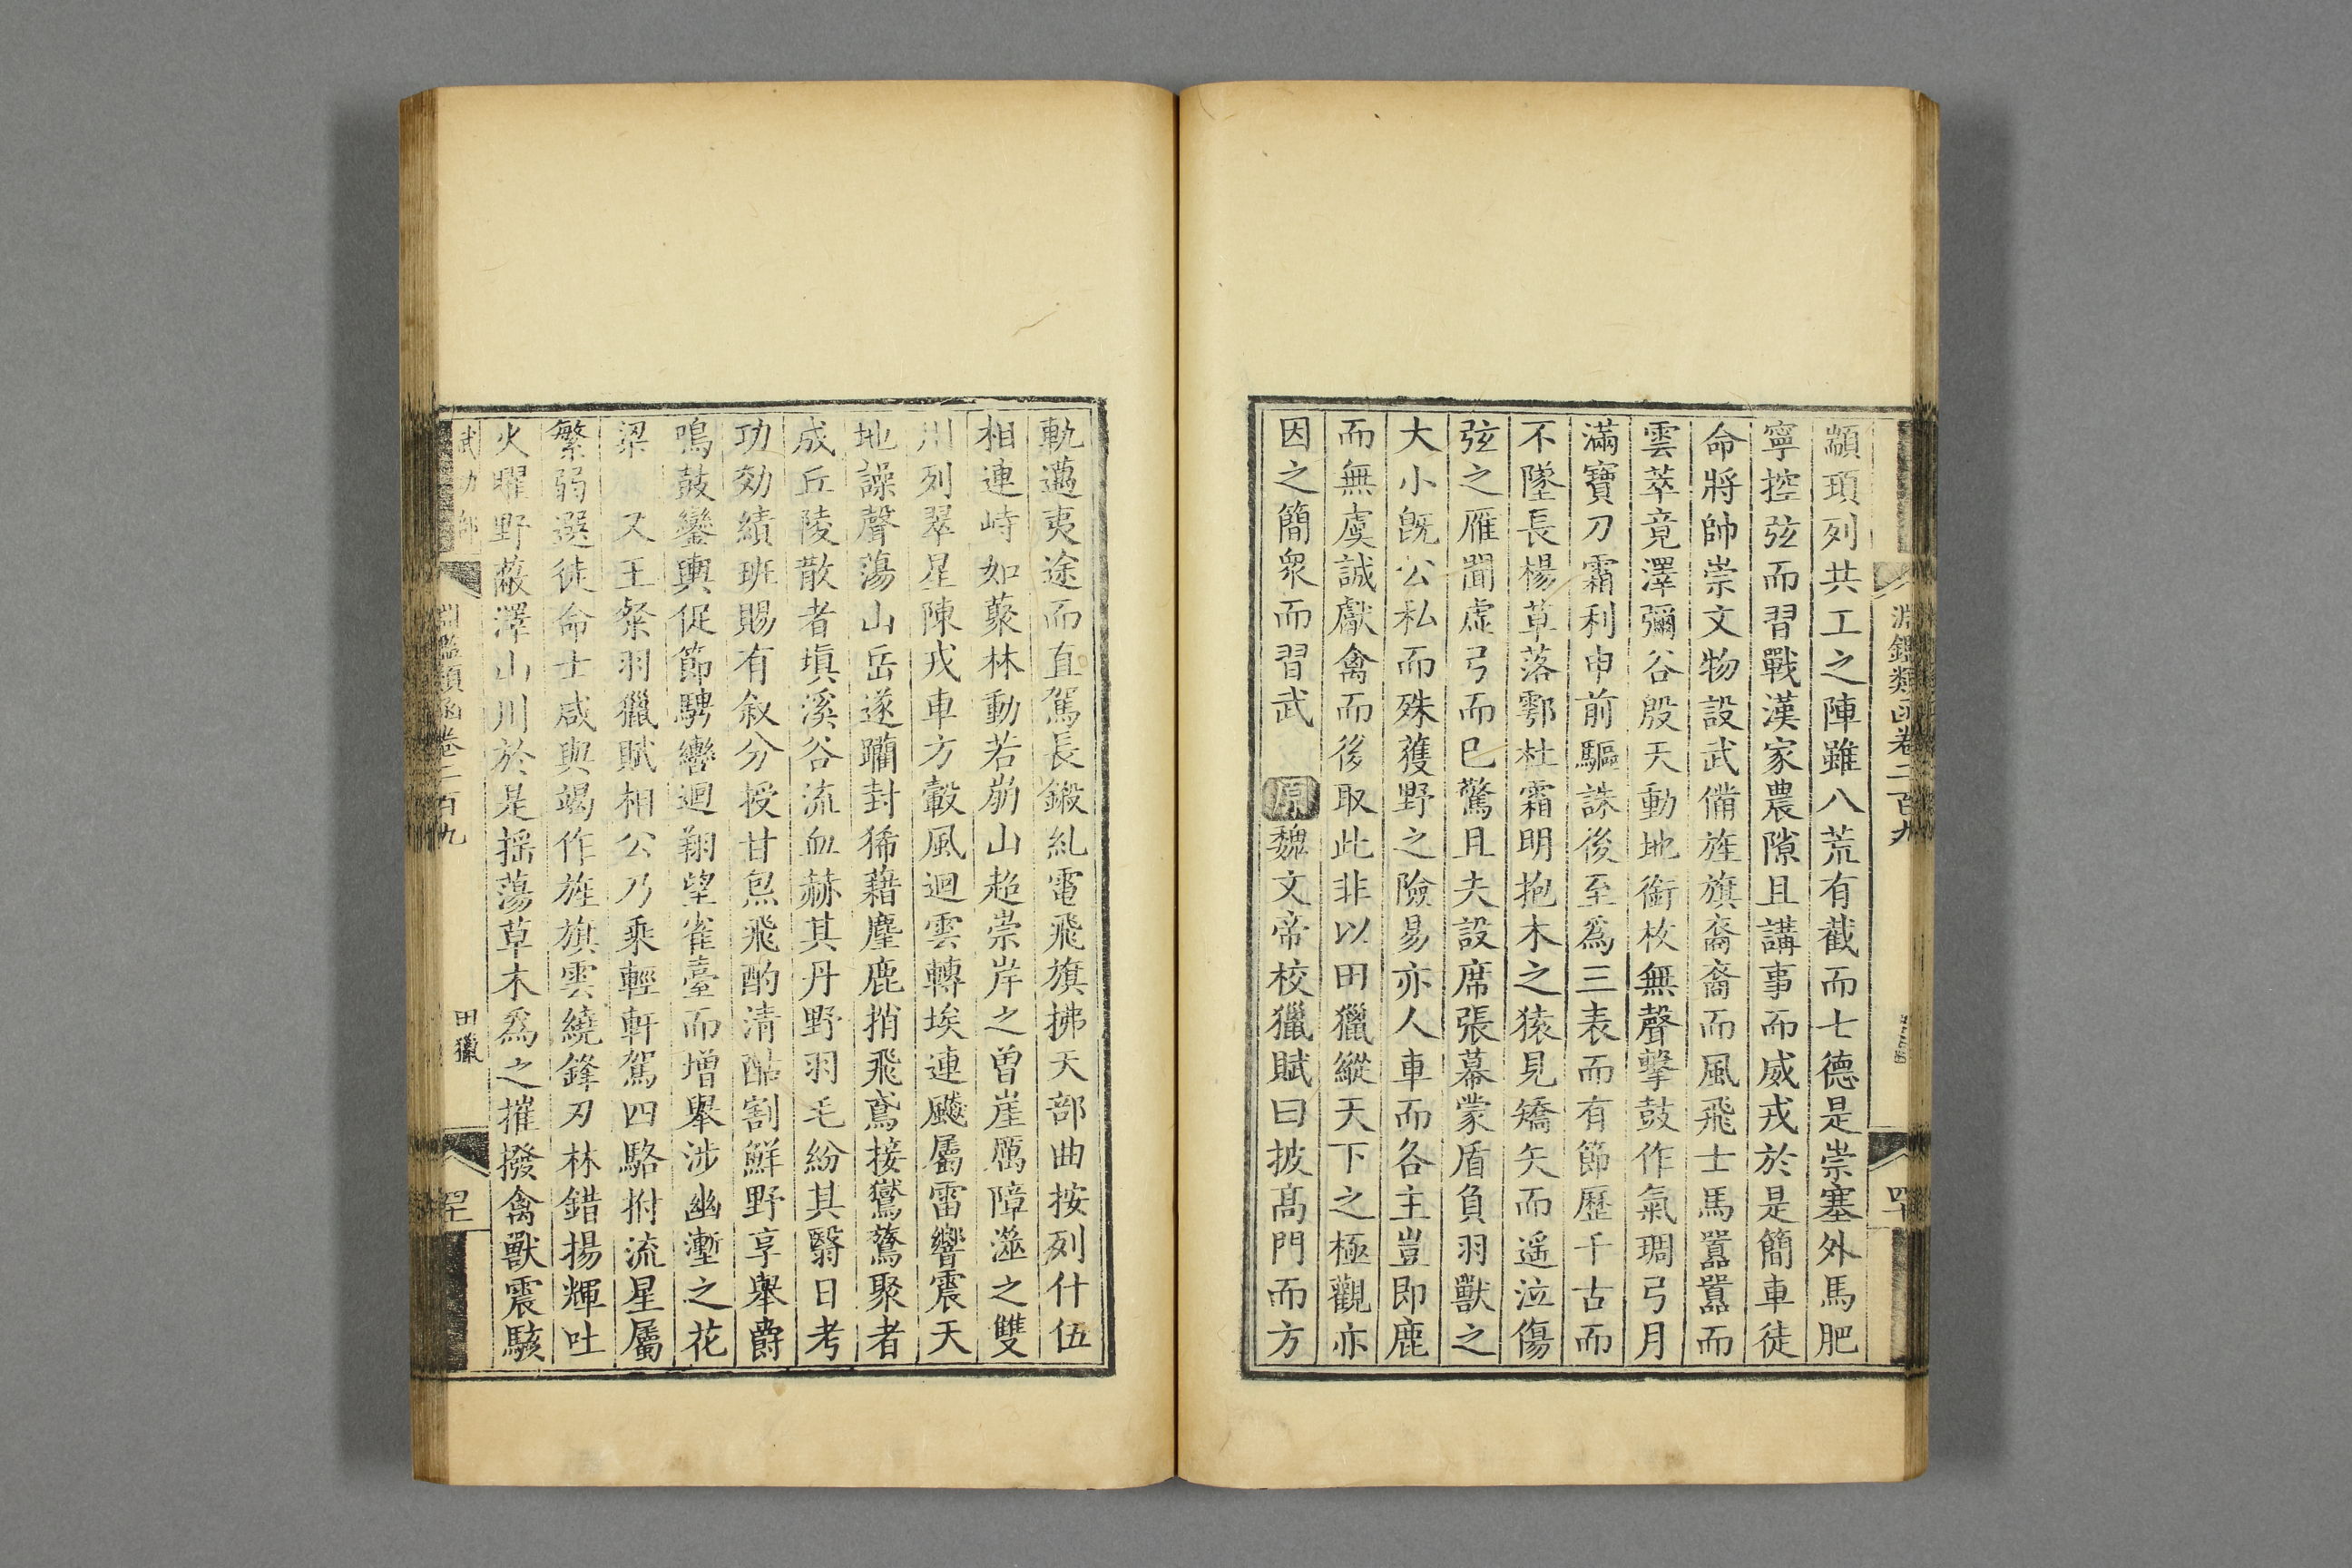 淵鑑類函卷二百九
四十
顓頊列共工之陣雖八荒有截而七德是崇塞外馬肥
寧控弦而習戰漢家農隙且講事而威戎於是簡車徒
命將帥崇文物設武備旌旗裔裔而風飛士馬囂囂而
雲萃竟澤彌谷殷天動地銜枚無聲擊鼓作氣琱弓月
滿寶刀霜利申前驅誅後至爲三表而有節歷千古而
不墜長楊草落鄠杜霜明抱木之猿見矯矢而遥泣傷
弦之雁聞虛弓而已驚且夫設席張幕蒙盾負羽獸之
大小旣公私而殊獲野之險易亦人車而各主豈即鹿
而無虞誠獻禽而後取此非以田獵縱天下之極觀亦
因之簡衆而習武 原魏文帝校獵賦曰披高門而方
軌邁夷途而直駕長鎩糺電飛旗拂天部曲按列什伍
相連峙如藂林動若崩山超崇岸之曾崖厲障澨之雙
川列翠星陳戎車方轂風迴雲轉埃連飈屬雷響震天
地譟聲蕩山岳遂躪封狶藉麈鹿捎飛鳶接鸑鷟聚者
成丘陵散者塡溪谷流血赫其丹野羽毛紛其翳日考
功効績班賜有敘分授甘炰飛酌清酤割鮮野享舉爵
鳴鼓鑾輿促節騁轡迴翔望雀臺而增舉涉幽壍之花
梁 又王粲羽獵賦相公乃乘輕軒駕四駱拊流星屬
繁弱選徒命士咸與竭作旌旗雲繞鋒刃林錯揚輝吐
火曜野蔽澤山川於是搖蕩草木爲之摧撥禽獸震駭
武功部
淵鑑類函卷二百九
田獵